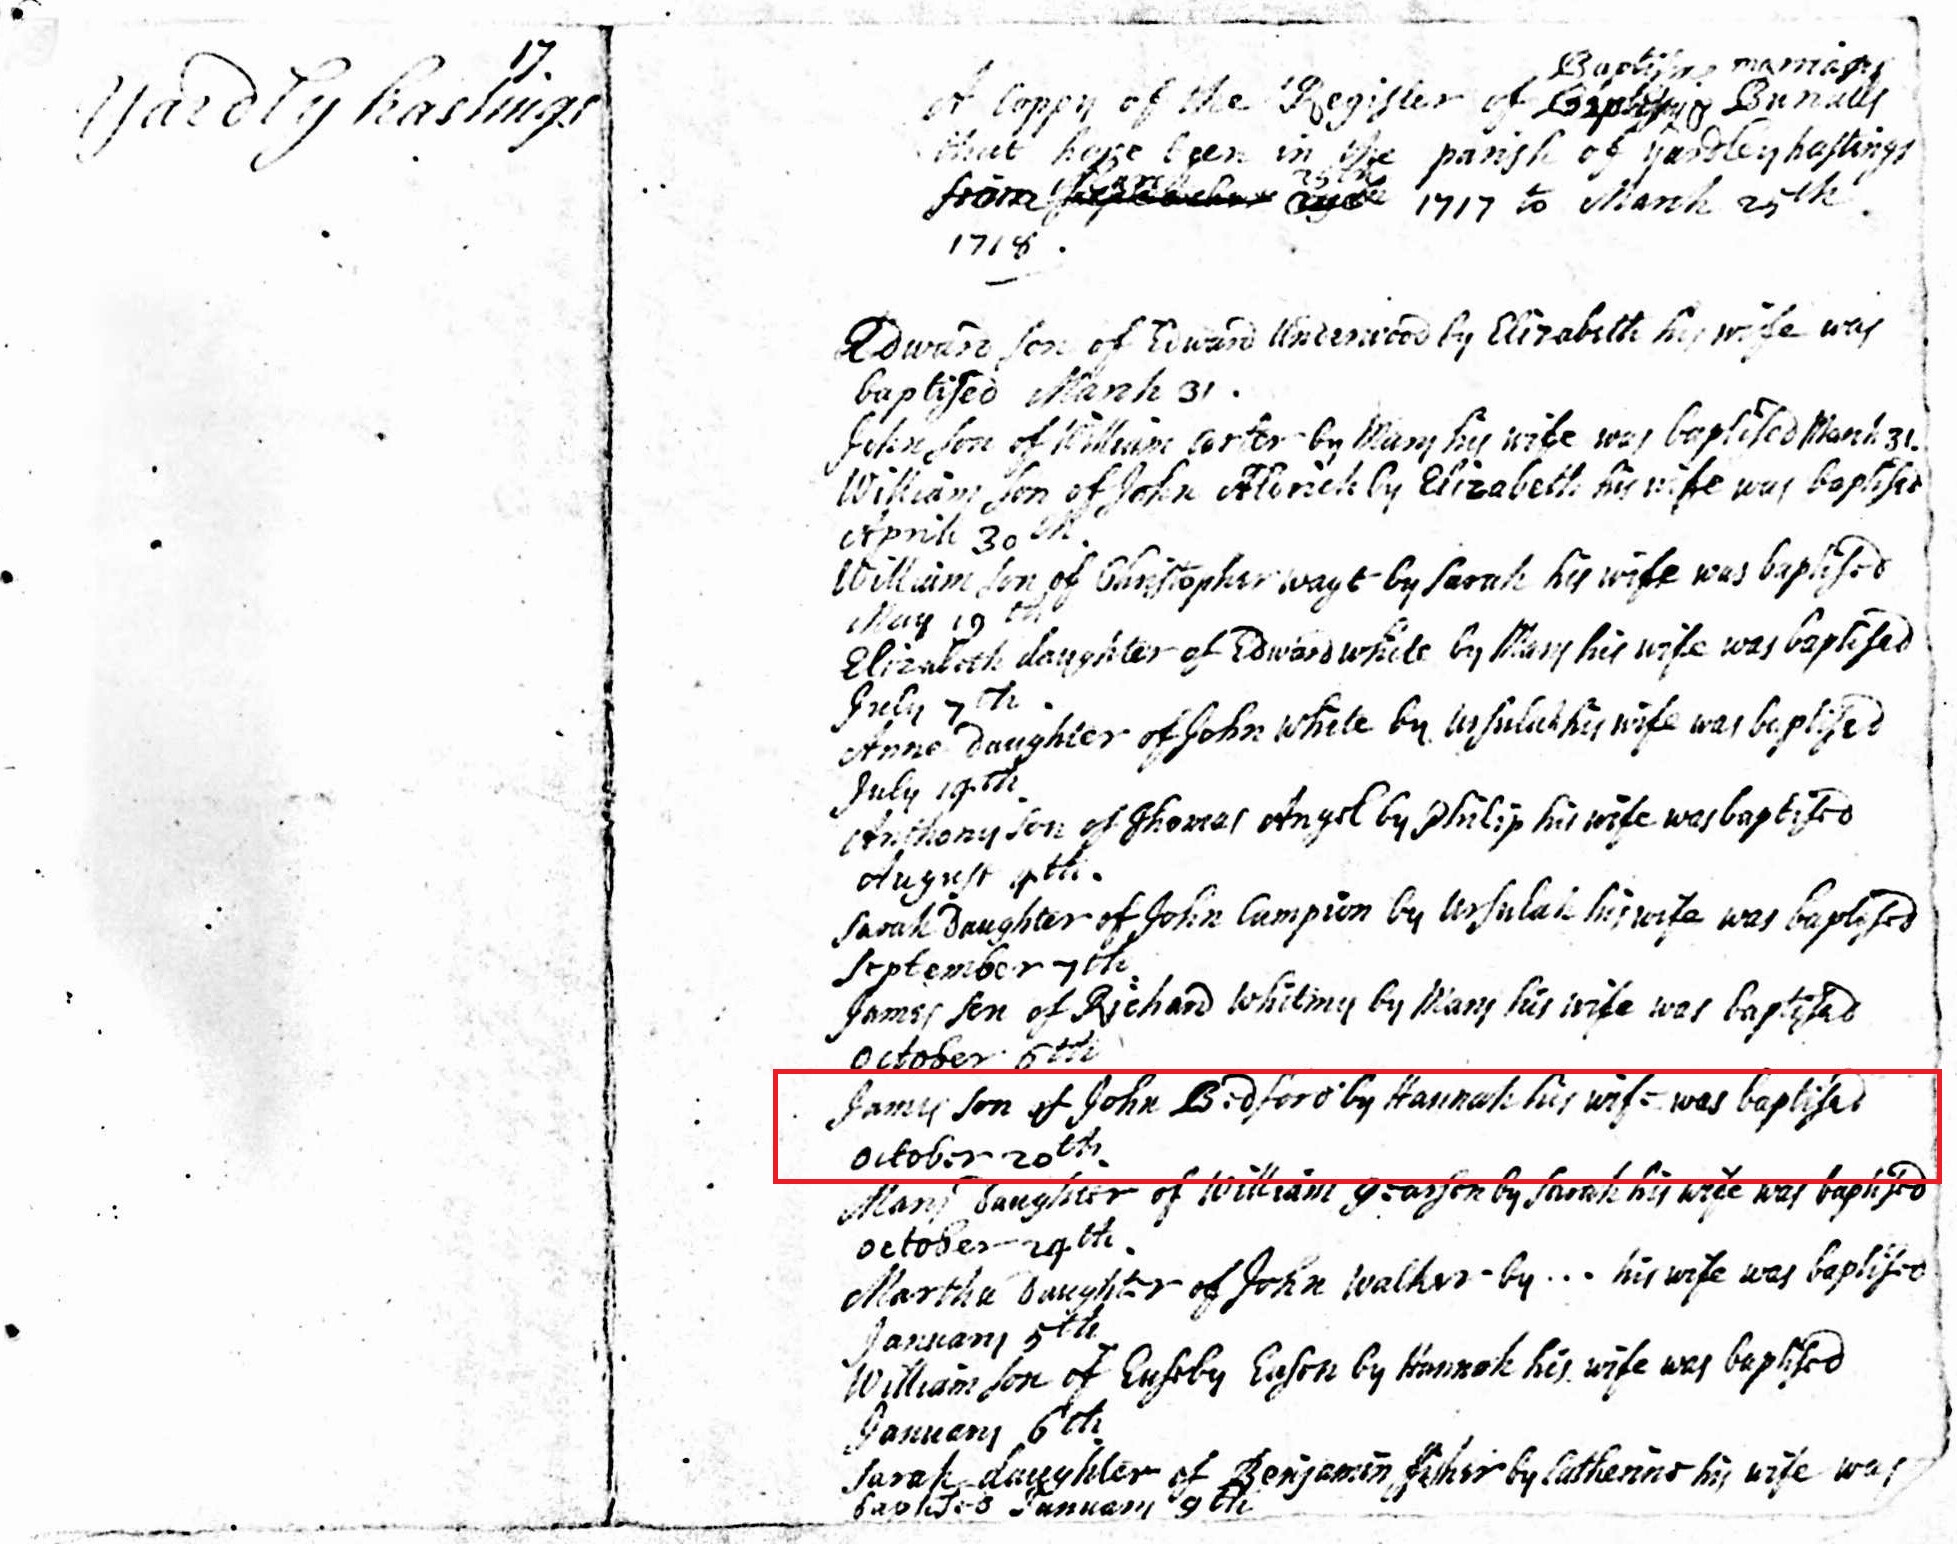 17
Yardly hastings
Baptisms marriages
A Coppy of the Register of Burialls
that have been in the parish of yardley hastings
from 25th 1717 to March 25th
1718.
Edward son of Edward Underwood by Elizabeth his wife was
baptised March 31.
John son of William Carter by Mary his wife was baptised March 31.
William son of John Aldrich by Elizabeth his wife was baptised
April 30th.
William son of Christopher wayt by Sarah his wife was baptised
May 19th
Elizabeth daughter of Edward white by Mary his wife was baptised
July 7th.
Anne Daughter of John white by Ursulah his wife was baptised
July 19th.
Anthony son of Thomas Angel by Philip his wife was baptised
August 4th.
Sarah Daughter of John Campion by Ursulah his wife was baptised
September 7th
James son of Richard Whitmy by Mary his wife was baptised
October 6th
James son of John Bedford by Hannah his wife was baptised
October 20th.
Mary Daughter of William by Sarah his wife was baptised
October 24th.
Martha Daughter of John Walker by ... his wife was baptised
January 5th
William son of Euseby Eason by Hannah his wife was baptised
January 6th
Sarah daughter of Benjamin fisher by Catherine his wife was
baptised January 9th